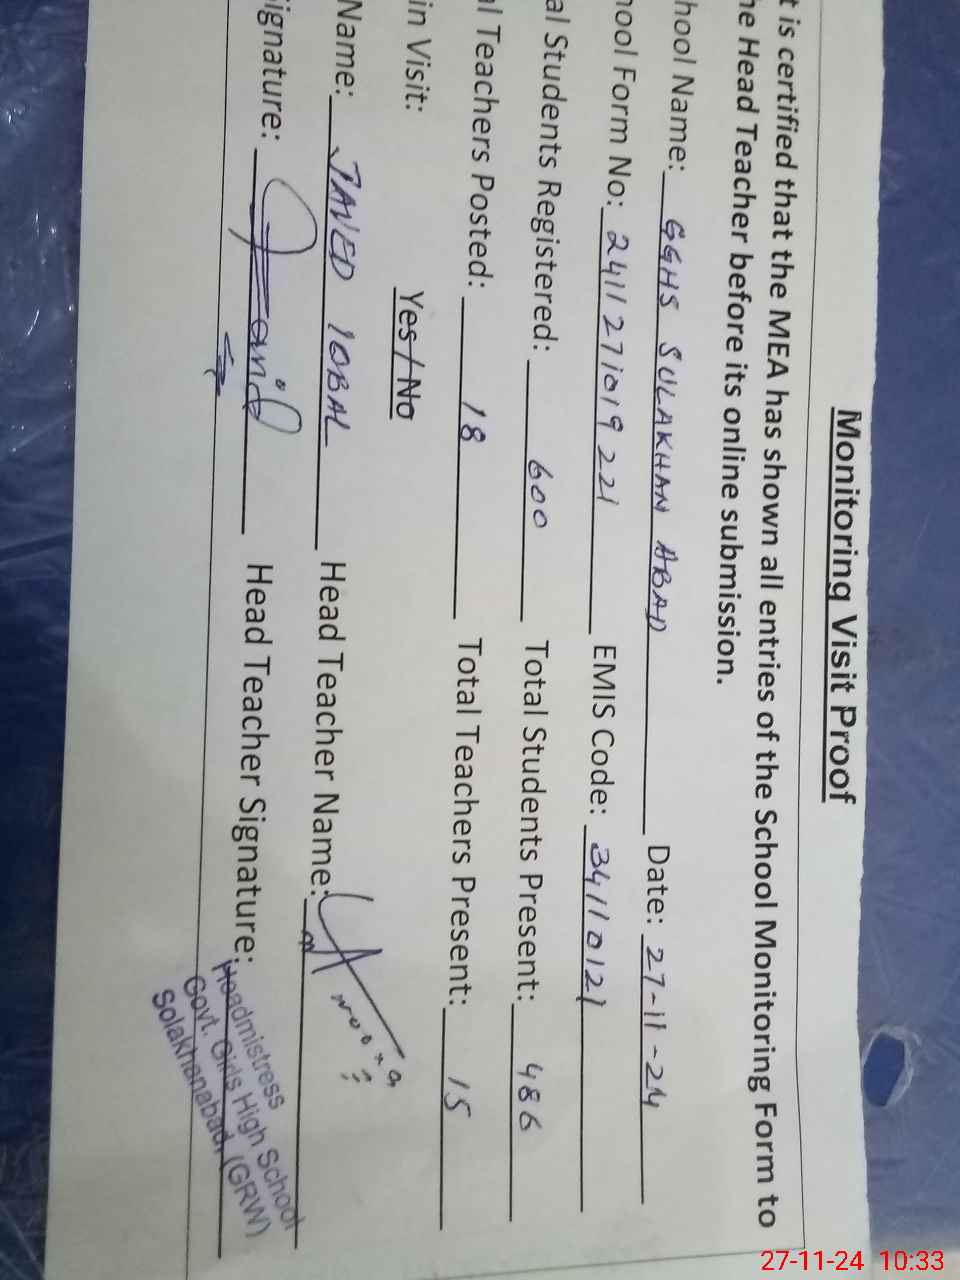 Monitoring Visit Proof
t is certified that the MEA has shown all entries of the School Monitoring Form to
he Head Teacher before its online submission.
hool Name: GGHS SOLAKHAN ABAD Date: 27-11-24
hool Form No: 2411271019221 EMIS Code: 34110121
al Students Registered: 600 Total Students Present: 486
al Teachers Posted: 18 Total Teachers Present: 15
in Visit: Yes / No
Name: JAVED IQBAL Head Teacher Name:
ignature: Head Teacher Signature:
Headmistress
Govt. Girls High School
Solakhanabad, (GRW)
27-11-24 10:33